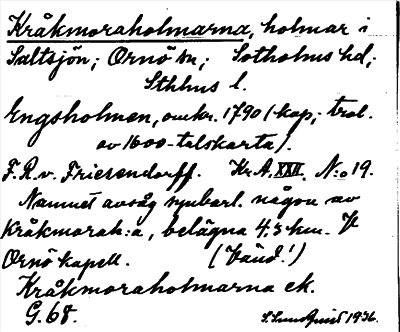 Kråkmoraholmarna, holmar i
Saltsjön; Ornö sn; Sotholms hd;
Sthlms l.
Engsholmen, omkr. 1790 (kop; trol.
av 1600-talskarta).
F.R.v. Friesendorff. Kr.A. XXII. N:o 19.
Namnet avsåg synbarl. någon av
Kråkmorah:a, belägna 4.3 km. V
Ornö kapell. (Vänd!)
Kråkmoraholmarna ek.
G.68. S. Lundqvist 1936.